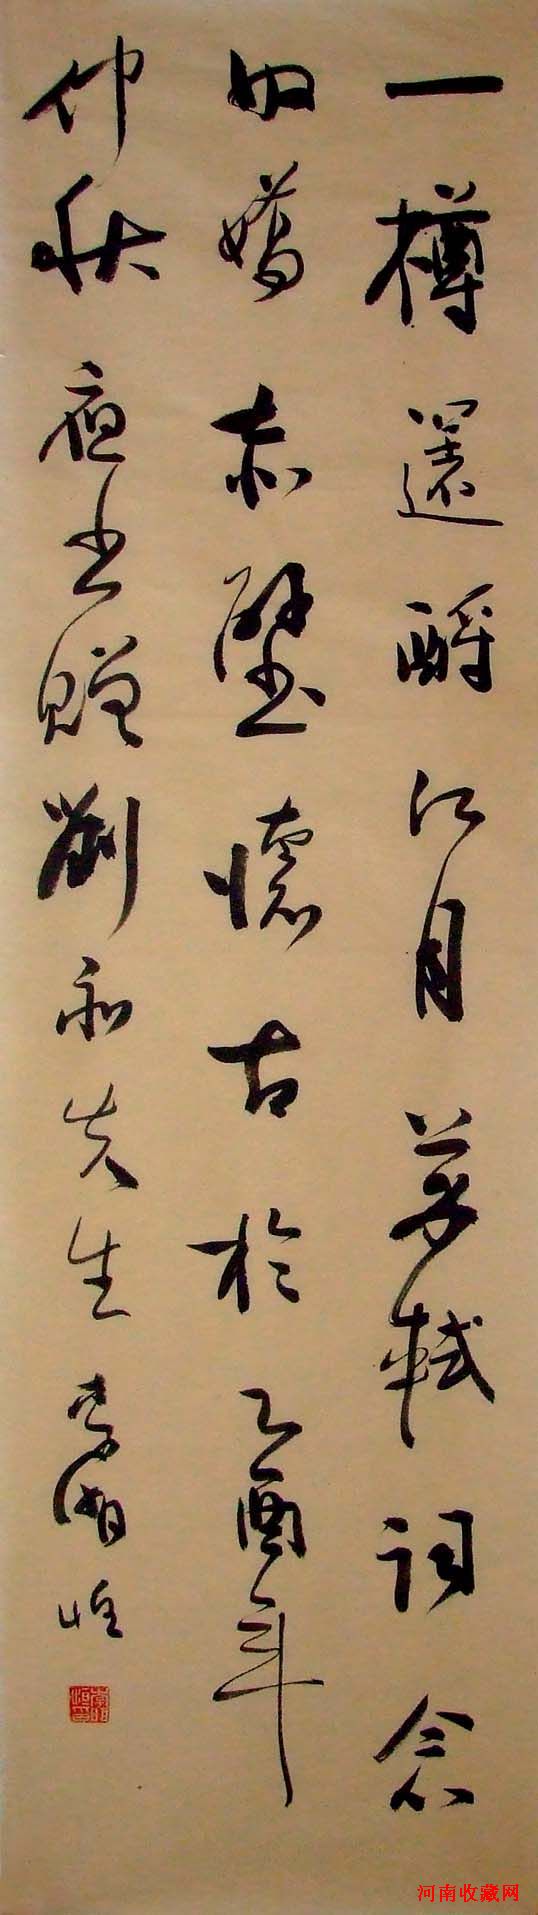 一樽還酹江月蘇軾詞念
奴嬌赤壁懷古於乙酉年
仲秋夜書贈劉和先生李
河南收藏网